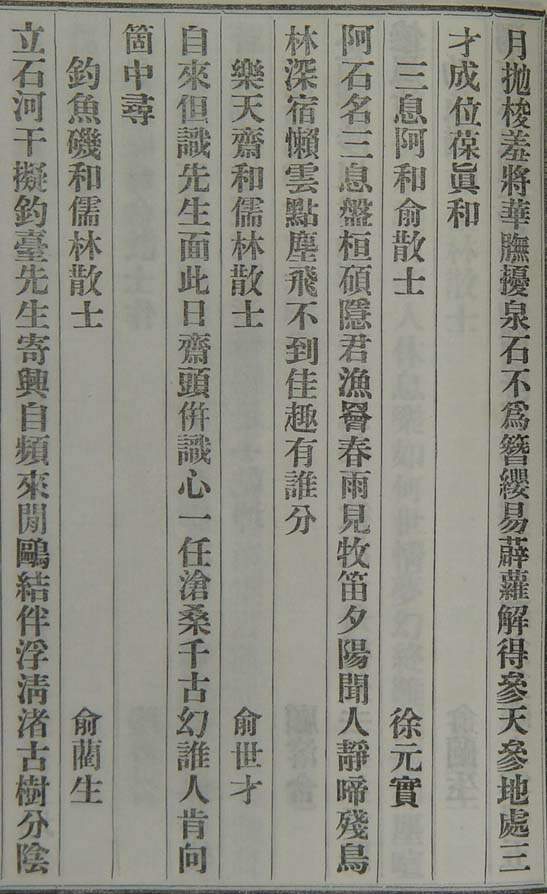 月拋梭羞將華膴擾泉石不爲簪纓易薜蘿解得參天參地處三
才成位葆眞和
三息阿和俞散士　徐元實
阿石名三息盤桓碩隱君漁罾春雨見牧笛夕陽聞人靜啼殘鳥
林深宿懶雲點塵飛不到佳趣有誰分
樂天齋和儒林散士　俞世才
自來但識先生面此日齋頭併識心一任滄桑千古幻誰人肯向
箇中尋
釣魚磯和儒林散士　俞藺生
立石河干擬釣臺先生寄興自頻來閒鷗結伴浮淸渚古樹分陰